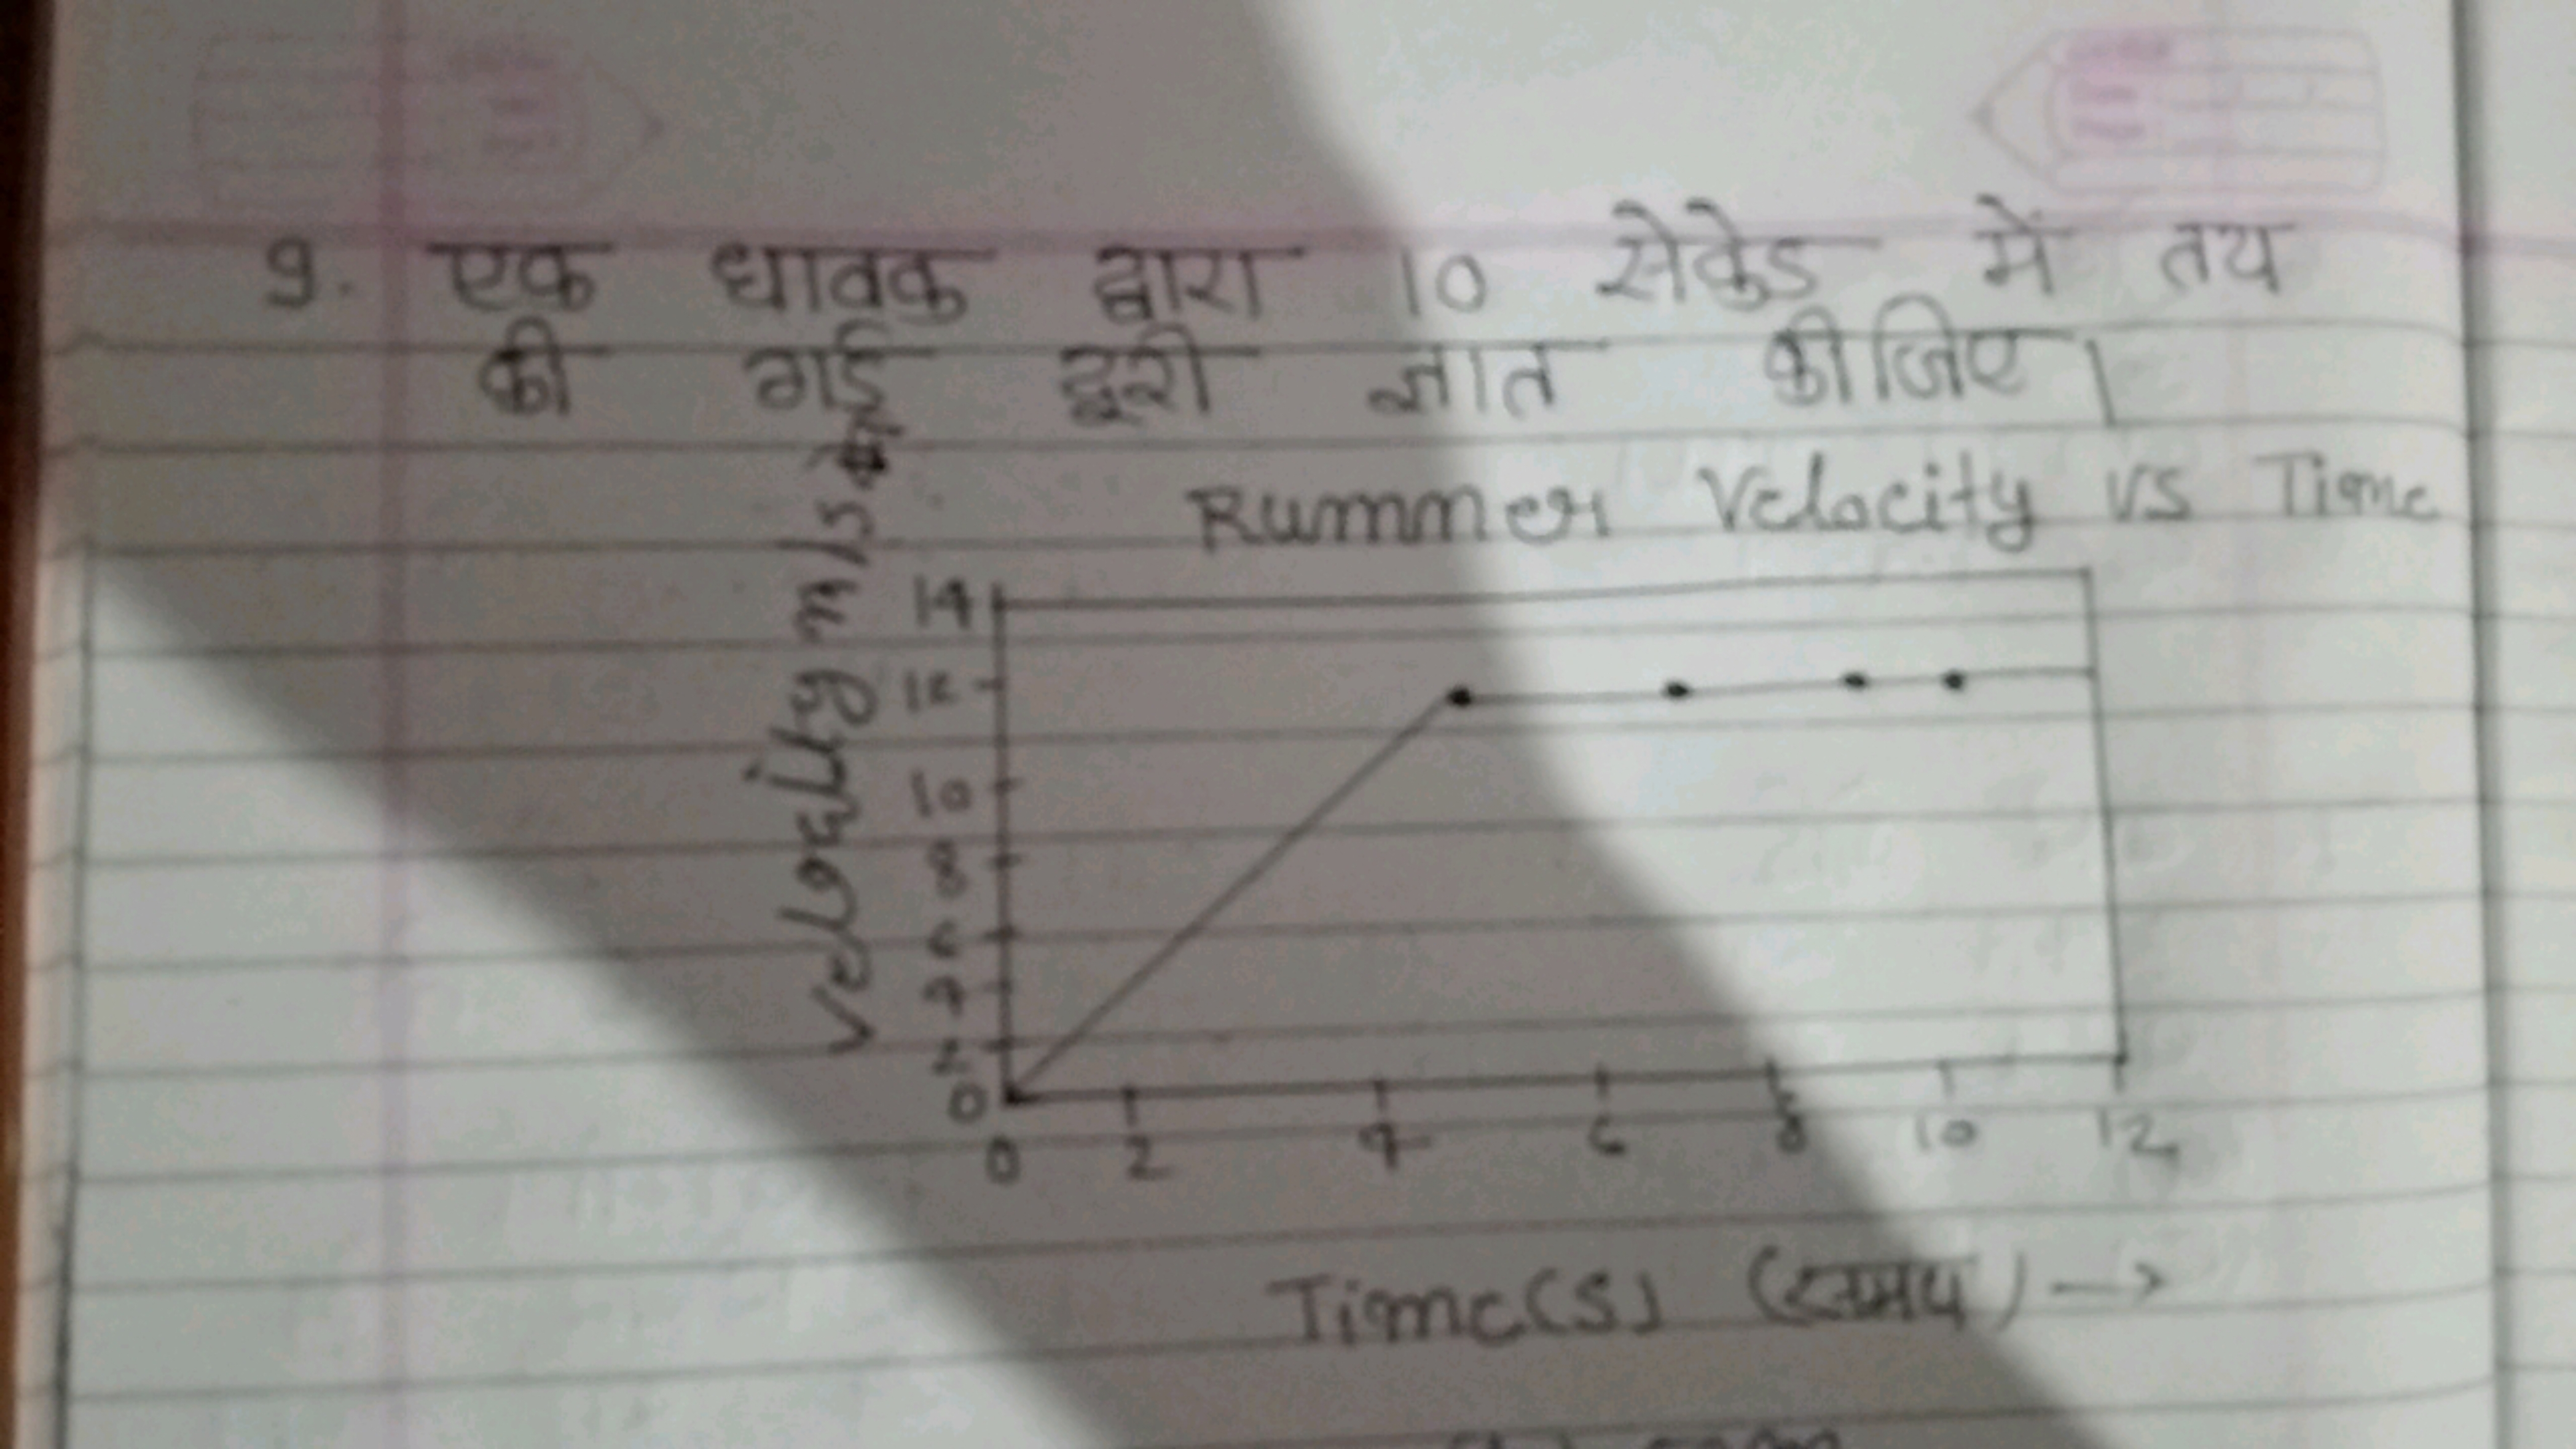 9. एक धावक द्वारा 10 सेकेंड में तय
की गई दूरी ज्ञात कीजिए।
Rummer Velocity vs Time
Velocity m/s
14
12
10
8
6
4
2
0
0 2 4 6 8 10 12
Time(s) (समय) →